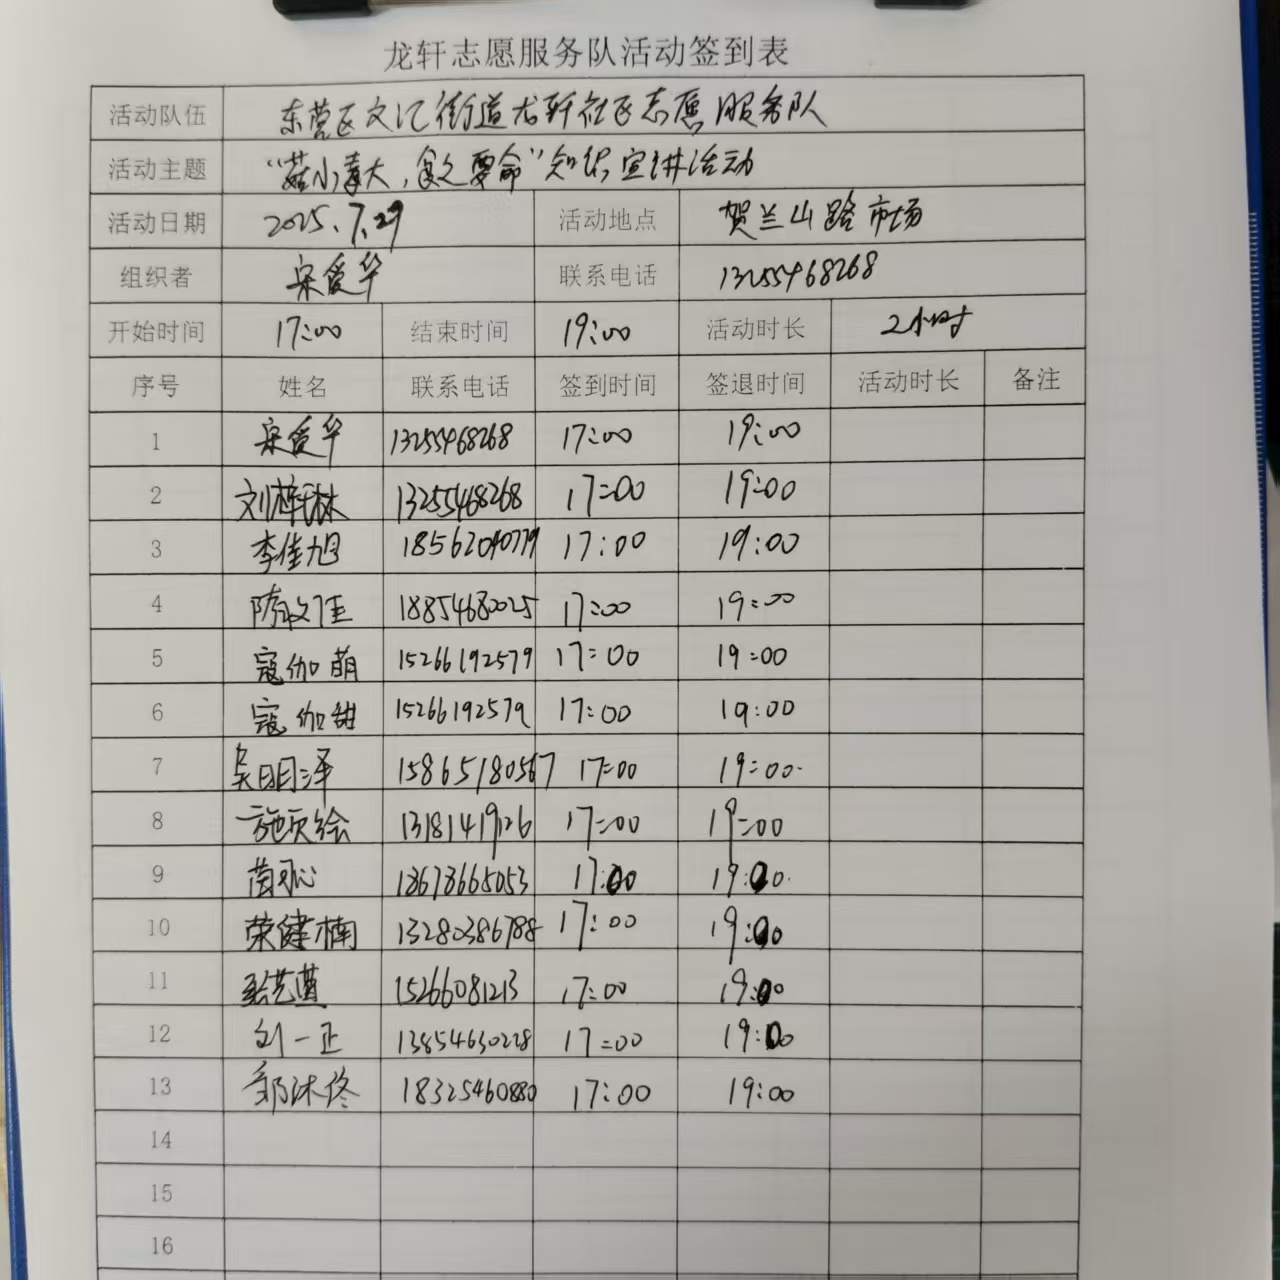 龙轩志愿服务队活动签到表
活动队伍 东营区文汇街道龙轩社区志愿服务队
活动主题 "菇小毒大，食之要命"知识宣讲活动
活动日期 2025.7.29 活动地点 贺兰山路市场
组织者 宋爱华 联系电话 13255468268
开始时间 17:00 结束时间 19:00 活动时长 2小时
序号 姓名 联系电话 签到时间 签退时间 活动时长 备注
1 宋爱华 13255468268 17:00 19:00
2 刘梓林 13255468268 17:00 19:00
3 李佳旭 18562040779 17:00 19:00
4 隋政佳 18854680025 17:00 19:00
5 寇伽萌 15266192579 17:00 19:00
6 寇伽甜 15266192579 17:00 19:00
7 吴明泽 15865180567 17:00 19:00
8 施页绘 13181419126 17:00 19:00
9 13678665053 17:00 19:00
10 荣健楠 13280386788 17:00 19:00
11 15266081213 17:00 19:00
12 刘一正 13854630228 17:00 19:00
13 邹沐佟 18325460880 17:00 19:00
14
15
16